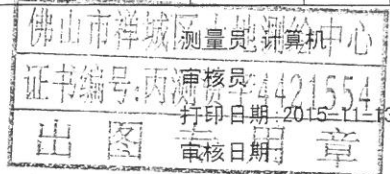 佛山市禅城区土地测绘中心
测量员:计算机
证书编号:丙测资字4421554
审核员
打印日期:2015-11-13
出图专用章
审核日期